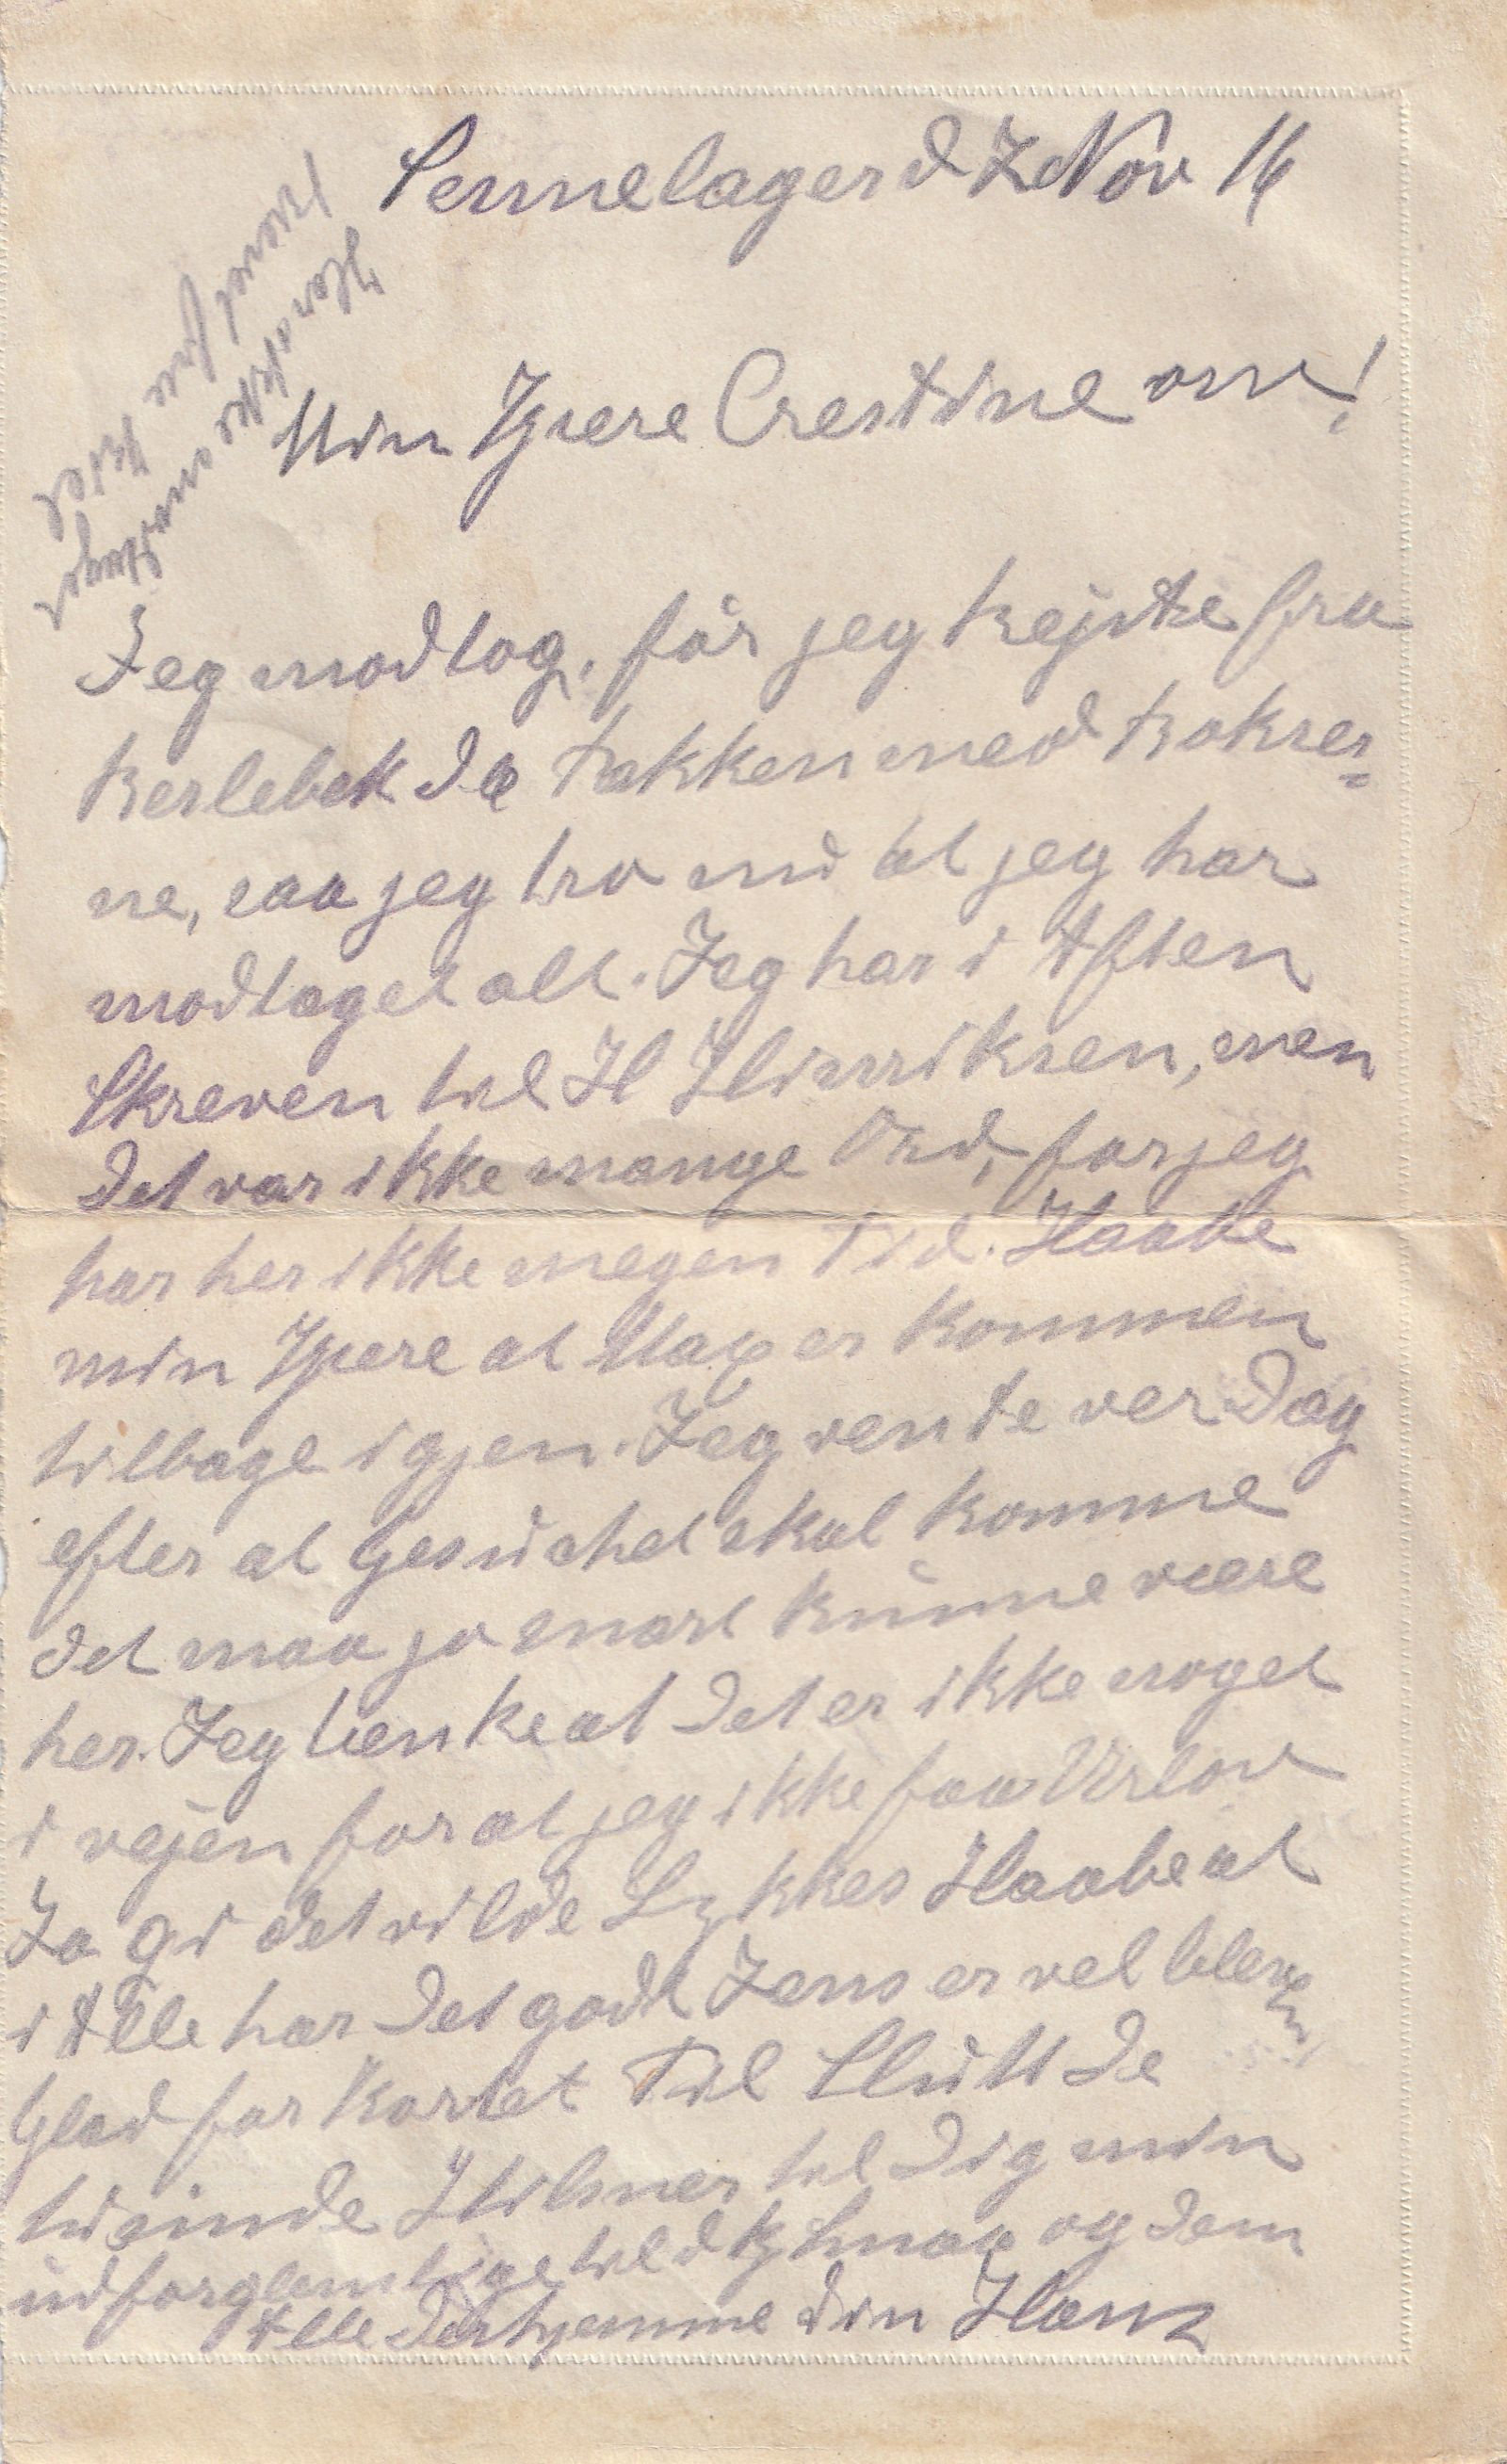 Sennelager d 7 Nov 16
Min Kjære Crestine mv!
Jeg modtog, før jeg Rejste fra
Berlebek de Pakken med Bokser=
ne, saa jeg tro nu at jeg har
modtaget alt. Jeg har i Aften
Skreven til H Hinriksen, men
det var ikke mange Ord, for jeg
har her ikke megen Tid. Haabe
min Kjære at Max er kommen
tilbage igjen. Jeg vente ver Dag
efter at Gesuchet skal komme
det maa jo snart kunne være
her. Jeg tænke at det er ikke noget
i vejen for at jeg ikke faa Urlov
Ja gi det vilde Lykkes Haabe at
i Alle har det godt Jens er vel bleven
Glad for Kortet Til Slutt de
tusinde Hilsner til Dig min
uforglemlige til de Smaa og dem
Alle derhjemme din Hans